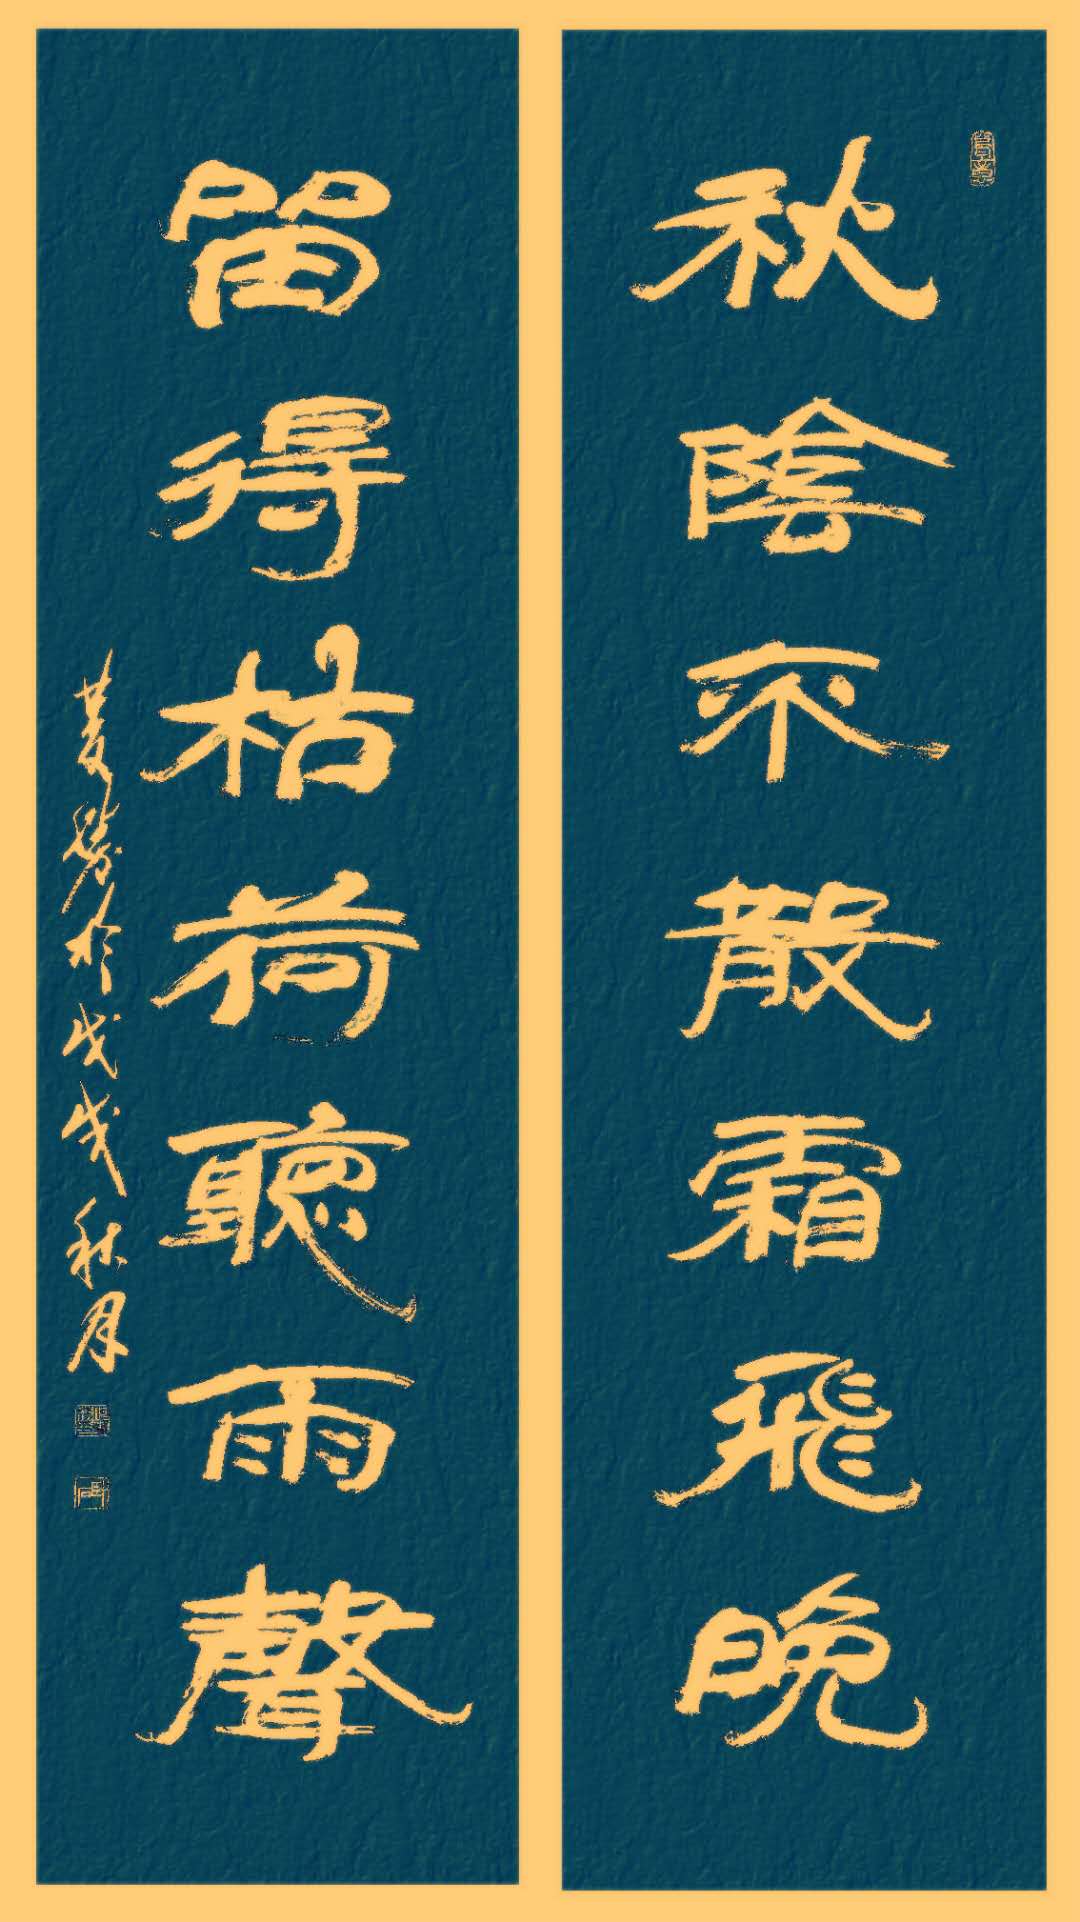 秋陰不散霜飛晚
留得枯荷聽雨聲
於戊戌秋月